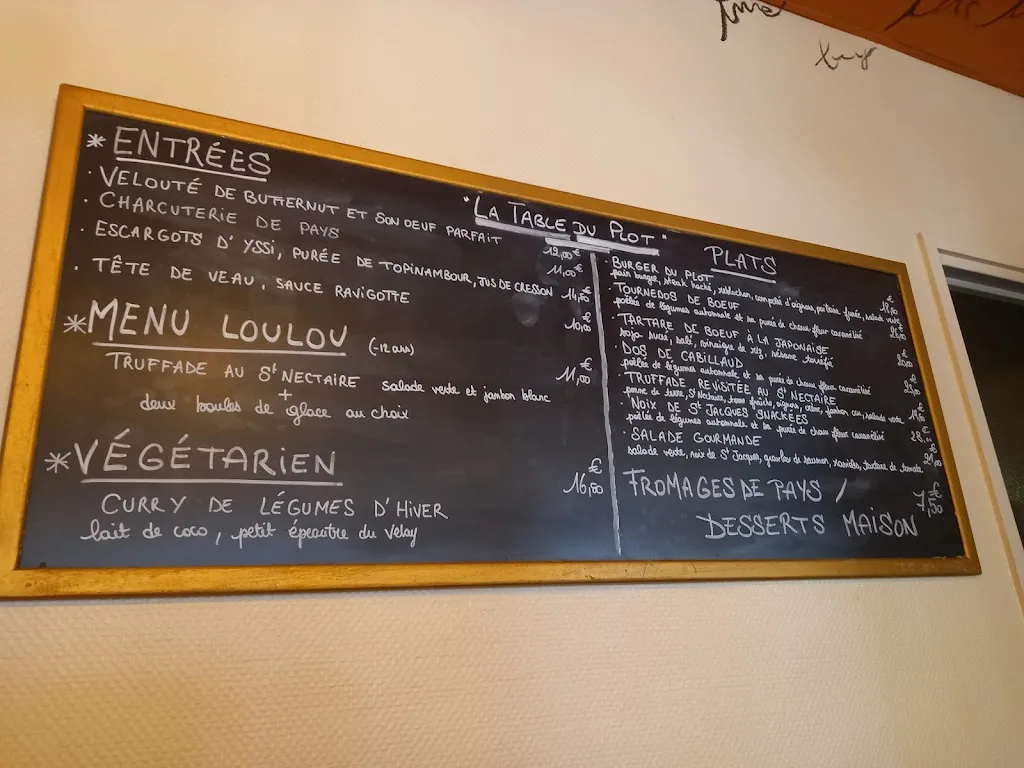 "LA TABLE DU PLOT"
* ENTRÉES
· VELOUTÉ DE BUTTERNUT ET SON OEUF PARFAIT 12,00€
· CHARCUTERIE DE PAYS 11,00€
· ESCARGOTS D'YSSI, PURÉE DE TOPINAMBOUR, JUS DE CRESSON
· TÊTE DE VEAU, SAUCE RAVIGOTTE
* MENU LOULOU (-12 ans)
TRUFFADE AU St NECTAIRE salade verte et jambon blanc 11,00€
+
deux boules de glace au choix
* VÉGÉTARIEN 16,50€
CURRY DE LÉGUMES D'HIVER
lait de coco, petit épeautre du Velay
PLATS
· BURGER DU PLOT
pain burger, steak haché, reblochon, compotée d'oignons, poitrine fumée, salade verte
· TOURNEDOS DE BOEUF
poêlée de légumes automnale et sa purée de choux fleur caramélisé
· TARTARE DE BOEUF À LA JAPONAISE
soja sucré, salé, vinaigre de riz, sésame torréfié
· DOS DE CABILLAUD
poêlée de légumes automnale et sa purée de choux fleur caramélisé
· TRUFFADE REVISITÉE AU St NECTAIRE
pomme de terre, St Nectaire, tome fraîche, oignons, crème, jambon cru, salade verte
· NOIX DE St JACQUES SNACKÉES
poêlée de légumes automnale et sa purée de choux fleur caramélisé
· SALADE GOURMANDE
salade verte, noix de St Jacques, de saumon, tartare de tomate
FROMAGES DE PAYS / 7,50€
DESSERTS MAISON